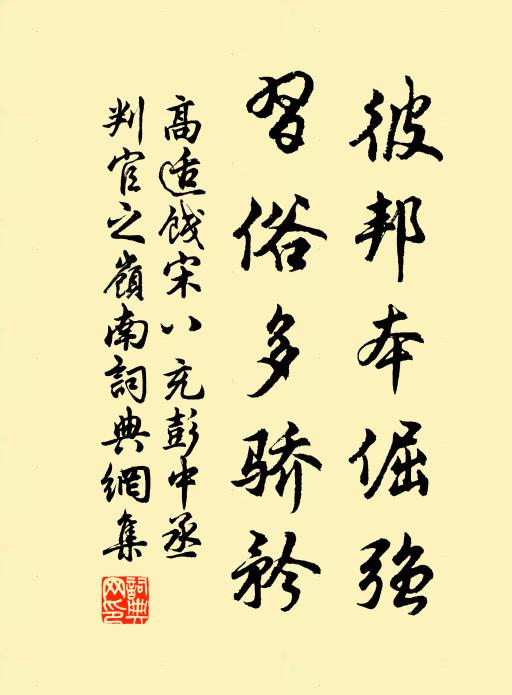 彼邦本倔強
習俗多骄矜
高适餞宋八充彭中丞
判官之嶺南詞典網集
詞典网印